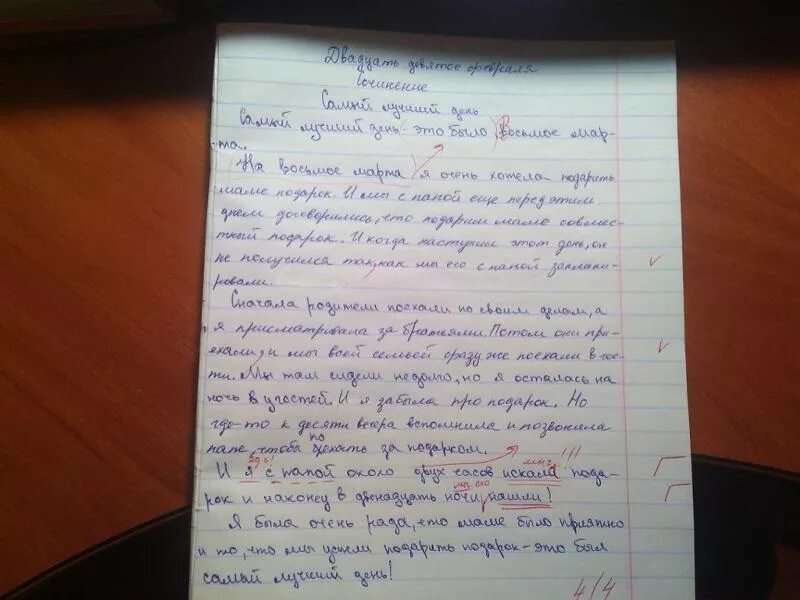 Двадцать девятое февраля
Сочинение
Самый лучший день
Самый лучший день - это было Восьмое мар-
та.
На восьмое марта я очень хотела подарить
маме подарок. И мы с папой еще перед этим
днем договорились, что подарим маме совмес-
тный подарок. И когда наступил этот день, он
не получился так, как мы его с папой заплани-
ровали.
Сначала родители поехали по своим делам, а
я присматривала за братьями. Потом они при-
ехали, и мы всей семьей сразу же поехали в гос-
ти. Мы там сидели недолго, но я осталась на
ночь в гостей. И я забыла про подарок. Но
где-то к десяти вечера вспомнила и позвонила
папе, чтобы поехать за подарком.
И я с папой около двух часов искала пода-
мн.ч. !!!
рок и наконец в двенадцать ночи нашли!
мы его
Я была очень рада, что маме было приятно
и то, что мы успели подарить подарок - это был
самый лучший день!
4/4